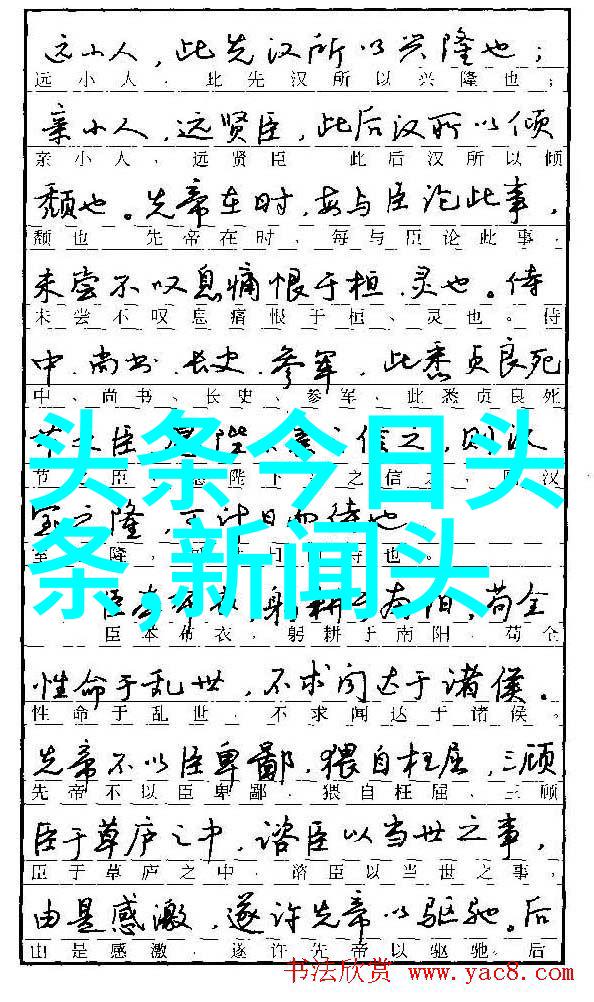 远小人，此先汉所以兴隆也；
远小人，此先汉所以兴隆也；
亲小人，远贤臣，此后汉所以倾
亲小人，远贤臣 此后汉所以倾
颓也。先帝在时，每与臣论此事，
颓也 先帝在时，每与臣论此事，
未尝不叹息痛恨于桓、灵也。侍
未尝不叹息痛恨于桓、灵也。侍
中、尚书、长史、参军，此悉贞良死
中、尚书、长史、参军，此悉贞良死
节之臣 陛 信之，则汉
节之臣 陛下 之信之 汉
头条今日头
室之隆，可计日而待也
隆， 待也
条,新闻头
臣本布衣，躬耕于南阳，苟全
臣本布衣，躬耕于南阳，苟全
性命于乱世，不求闻达于诸侯。
性命于乱世，不求闻达于诸侯。
先帝不以臣卑鄙，猥自枉屈，三顾
先帝不以臣卑鄙，猥自枉屈、三顾
臣于草庐之中，谘臣以当世之事，
臣于草庐之中，谘臣以当世之事，
由是感激，遂许先帝以驱驰。后
由是感激，遂许先帝以驱驰。后
书法欣赏 www.yac8.com